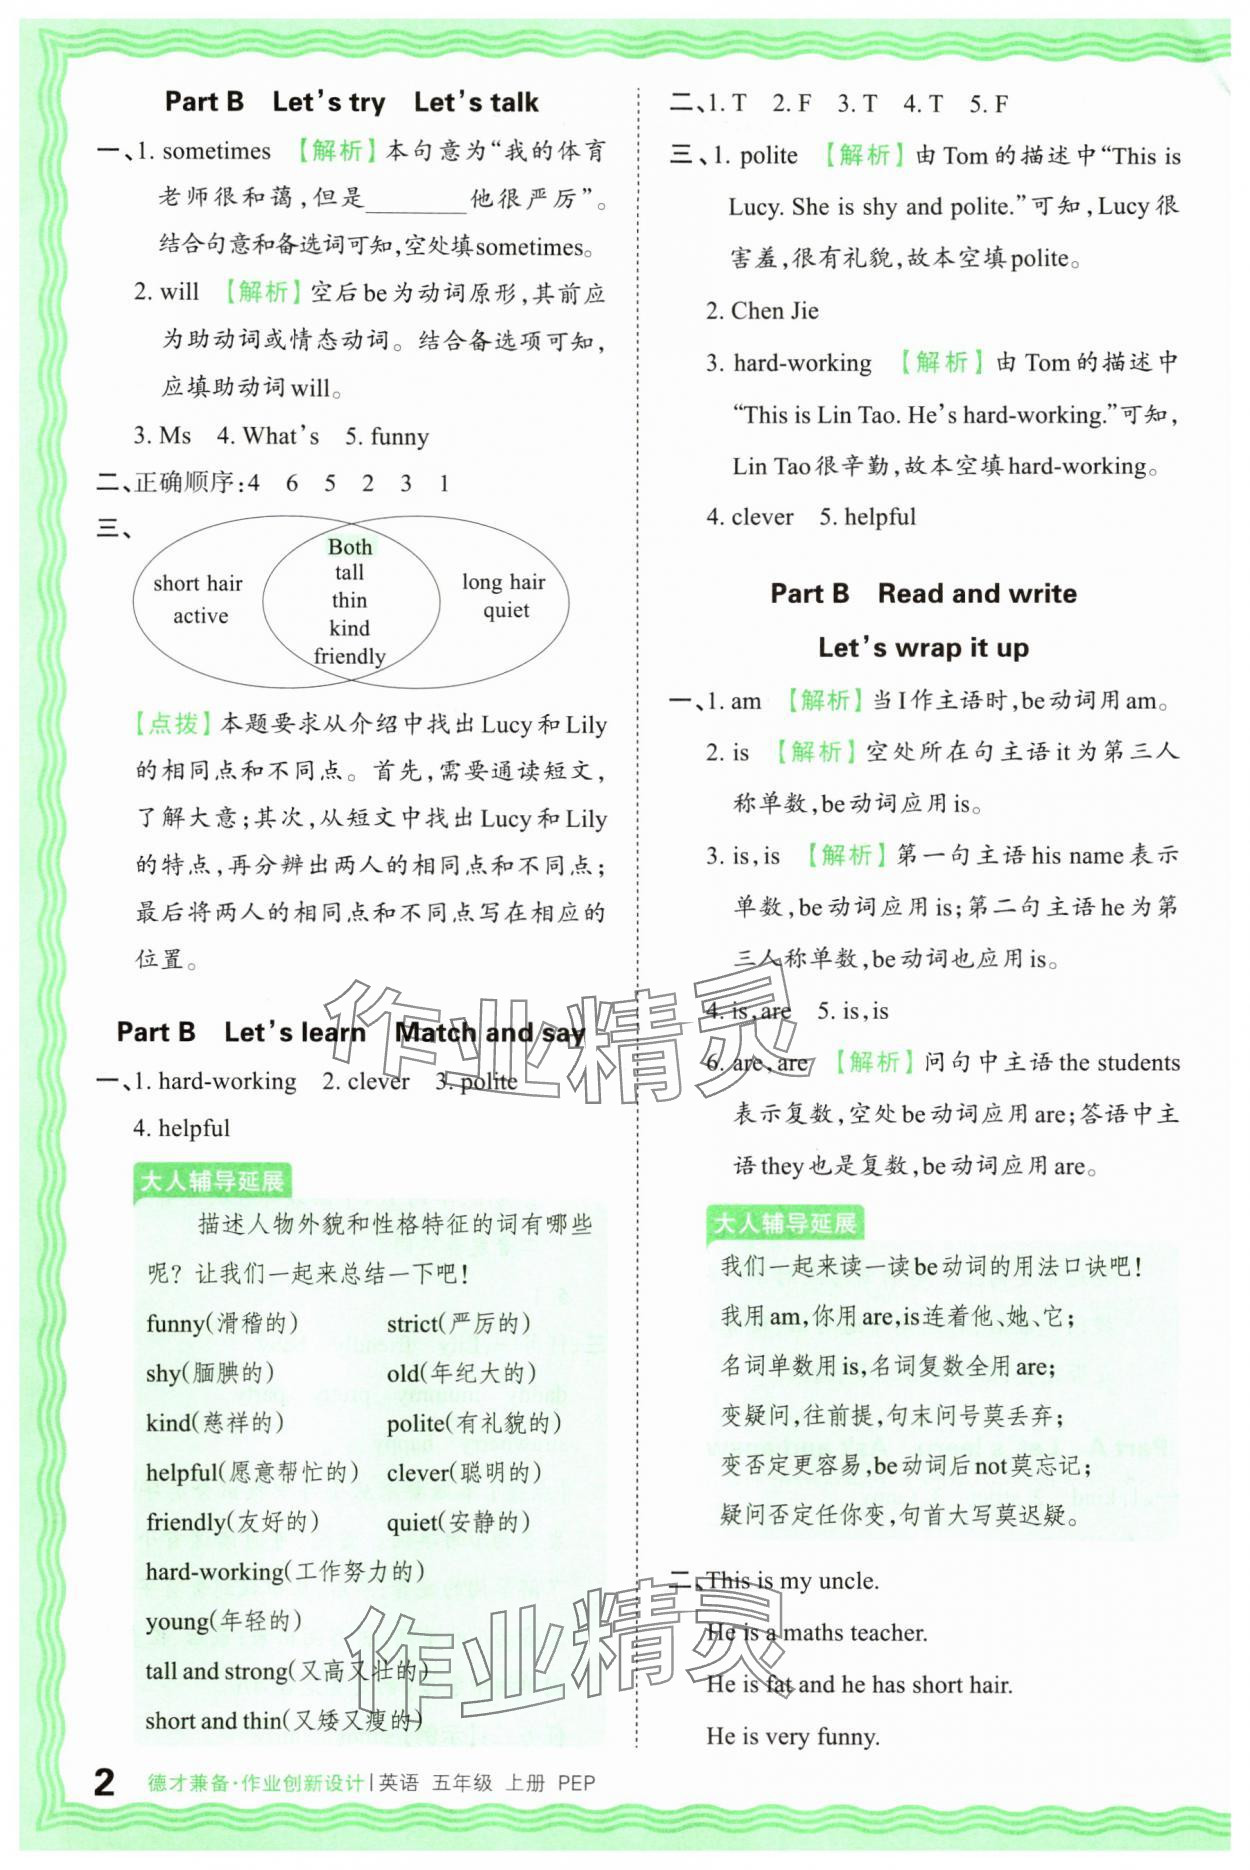 Part B　Let's try　Let's talk
一、1. sometimes　【解析】本句意为“我的体育
老师很和蔼，但是________他很严厉”。
结合句意和备选词可知，空处填sometimes。
2. will　【解析】空后be为动词原形，其前应
为助动词或情态动词。结合备选项可知，
应填助动词will。
3. Ms　4. What's　5. funny
二、正确顺序：4　6　5　2　3　1
三、
Both
short hair
active
tall
thin
kind
friendly
long hair
quiet
【点拨】本题要求从介绍中找出Lucy和Lily
的相同点和不同点。首先，需要通读短文，
了解大意；其次，从短文中找出Lucy和Lily
的特点，再分辨出两人的相同点和不同点；
最后将两人的相同点和不同点写在相应的
位置。
Part B　Let's learn　Match and say
一、1. hard-working　2. clever　3. polite
4. helpful
大人辅导延展
描述人物外貌和性格特征的词有哪些
呢？让我们一起来总结一下吧！
funny(滑稽的)　strict(严厉的)
shy(腼腆的)　old(年纪大的)
kind(慈祥的)　polite(有礼貌的)
helpful(愿意帮忙的)　clever(聪明的)
friendly(友好的)　quiet(安静的)
hard-working(工作努力的)
young(年轻的)
tall and strong(又高又壮的)
short and thin(又矮又瘦的)
二、1. T　2. F　3. T　4. T　5. F
三、1. polite　【解析】由Tom的描述中“This is
Lucy. She is shy and polite.”可知，Lucy很
害羞，很有礼貌，故本空填polite。
2. Chen Jie
3. hard-working　【解析】由Tom的描述中
“This is Lin Tao. He's hard-working.”可知，
Lin Tao很辛勤，故本空填hard-working。
4. clever　5. helpful
Part B　Read and write
Let's wrap it up
一、1. am　【解析】当I作主语时，be动词用am。
2. is　【解析】空处所在句主语it为第三人
称单数，be动词应用is。
3. is,is　【解析】第一句主语his name表示
单数，be动词应用is；第二句主语he为第
三人称单数，be动词也应用is。
4. is,are　5. is,is
6. are,are　【解析】问句中主语the students
表示复数，空处be动词应用are；答语中主
语they也是复数，be动词应用are。
大人辅导延展
我们一起来读一读be动词的用法口诀吧！
我用am,你用are,is连着他、她、它；
名词单数用is,名词复数全用are；
变疑问，往前提，句末问号莫丢弃；
变否定更容易，be动词后not莫忘记；
疑问否定任你变，句首大写莫迟疑。
二、This is my uncle.
He is a maths teacher.
He is fat and he has short hair.
He is very funny.
作业精灵
作业精灵
2　德才兼备·作业创新设计|英语　五年级　上册　PEP